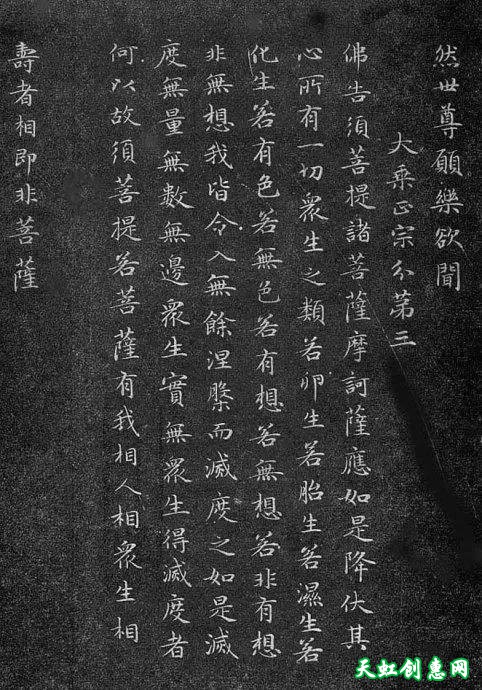 然世尊願樂欲聞
大乘正宗分第三
佛告須菩提諸菩薩摩訶薩應如是降伏其
心所有一切衆生之類若卵生若胎生若濕生若
化生若有色若無色若有想若無想若非有想
非無想我皆令入無餘涅槃而滅度之如是滅
度無量無數無邊衆生實無衆生得滅度者
何以故須菩提若菩薩有我相人相衆生相
壽者相即非菩薩
天虹创惠网